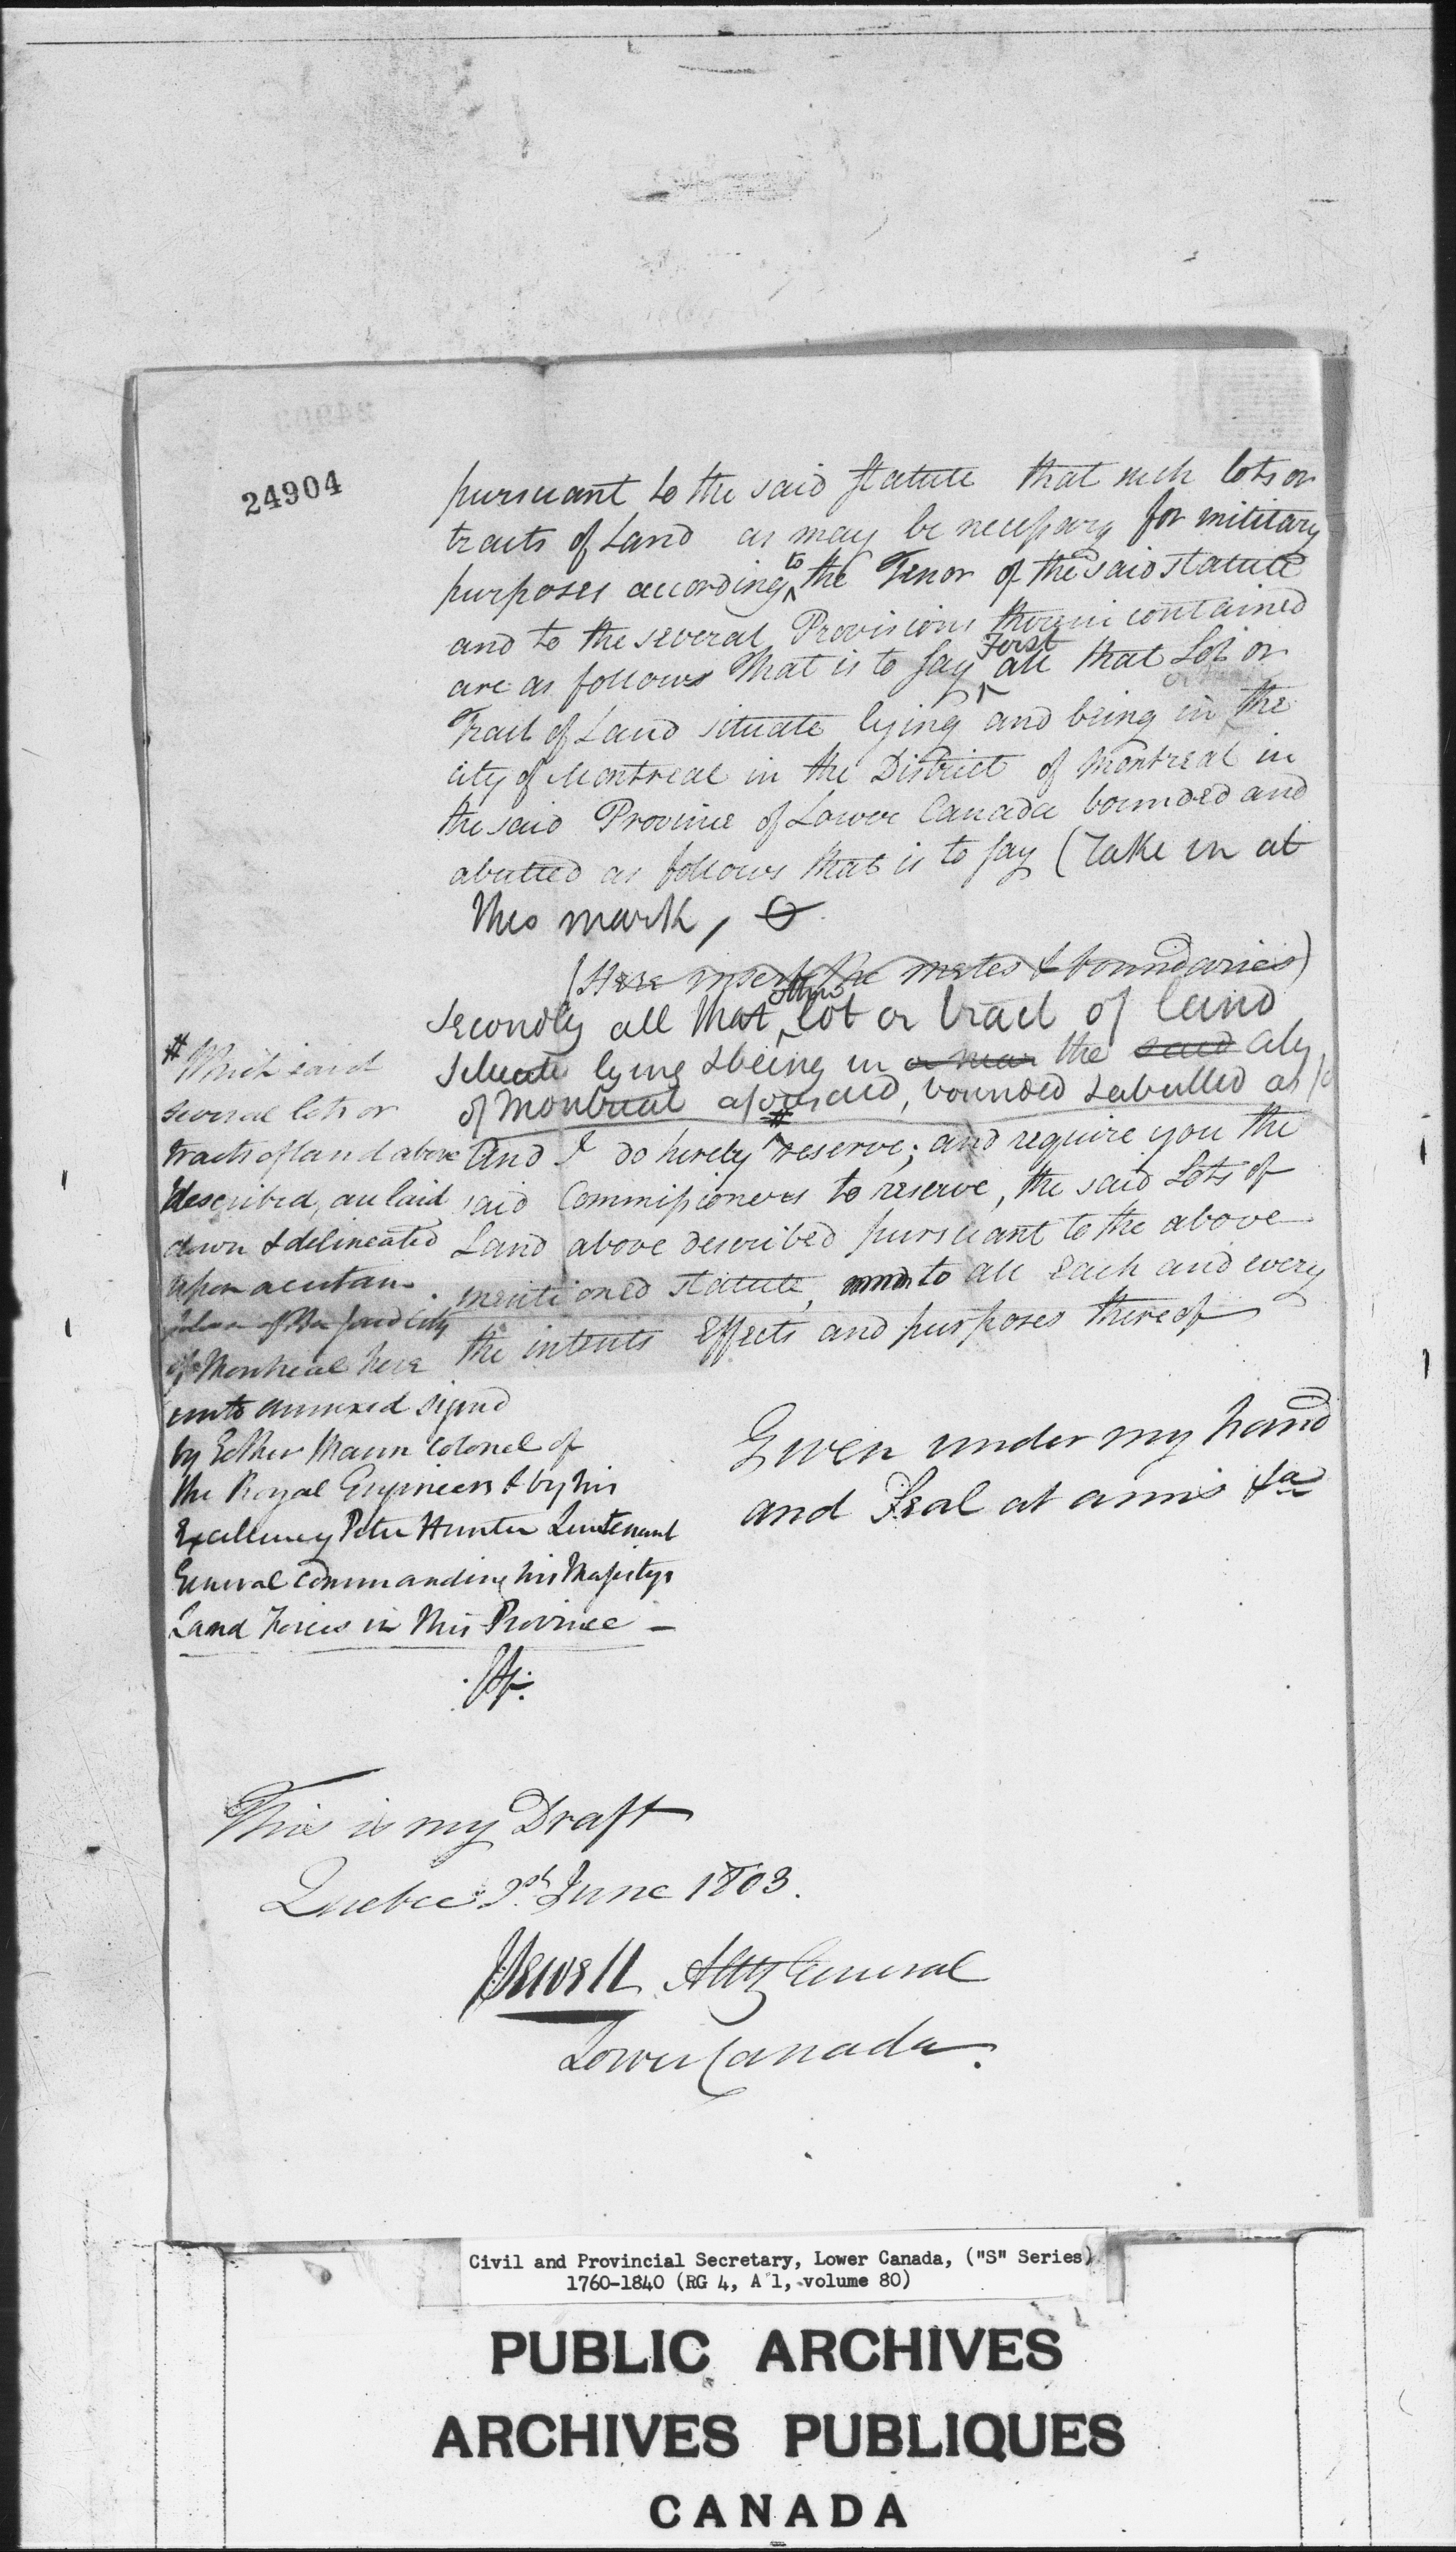 24904
pursuant to the said statute that such lots or
tracts of Land as may be necessary for military
purposes according to the Tenor of the said statute
and to the several Provisions therein contained
are as follows that is to say First all that Lot or
Tract of Land situate lying and being in the
city of Montreal in the District of Montreal in
the said Province of Lower Canada bounded and
abutted as follows that is to say (Take in at
this mark,
(Here insert the metes & boundaries)
Secondly all that other lot or tract of land
situate lying & being in or near the said City
of Montreal aforesaid, bounded & abutted as
And I do hereby # reserve; and require you the
said Commissioners to reserve, the said Lots of
Land above described pursuant to the above
mentioned statute, to all each and every
the intents Effects and purposes thereof
Given under my hand
and Seal at arms &a
# Which said
several lots or
tracts of land above
described, are laid
down & delineated
upon a certain
plan of the said City
of Montreal here
unto annexed signed
by Gother Mann Colonel of
the Royal Engineers & by his
Excellency Peter Hunter Lieutenant
General Commanding his Majestys
Land Forces in this Province —
This is my Draft
Quebec 2d June 1803.
JSewell Atty General
Lower Canada.
Civil and Provincial Secretary, Lower Canada, ("S" Series)
1760-1840 (RG 4, A 1, volume 80)
PUBLIC ARCHIVES
ARCHIVES PUBLIQUES
CANADA